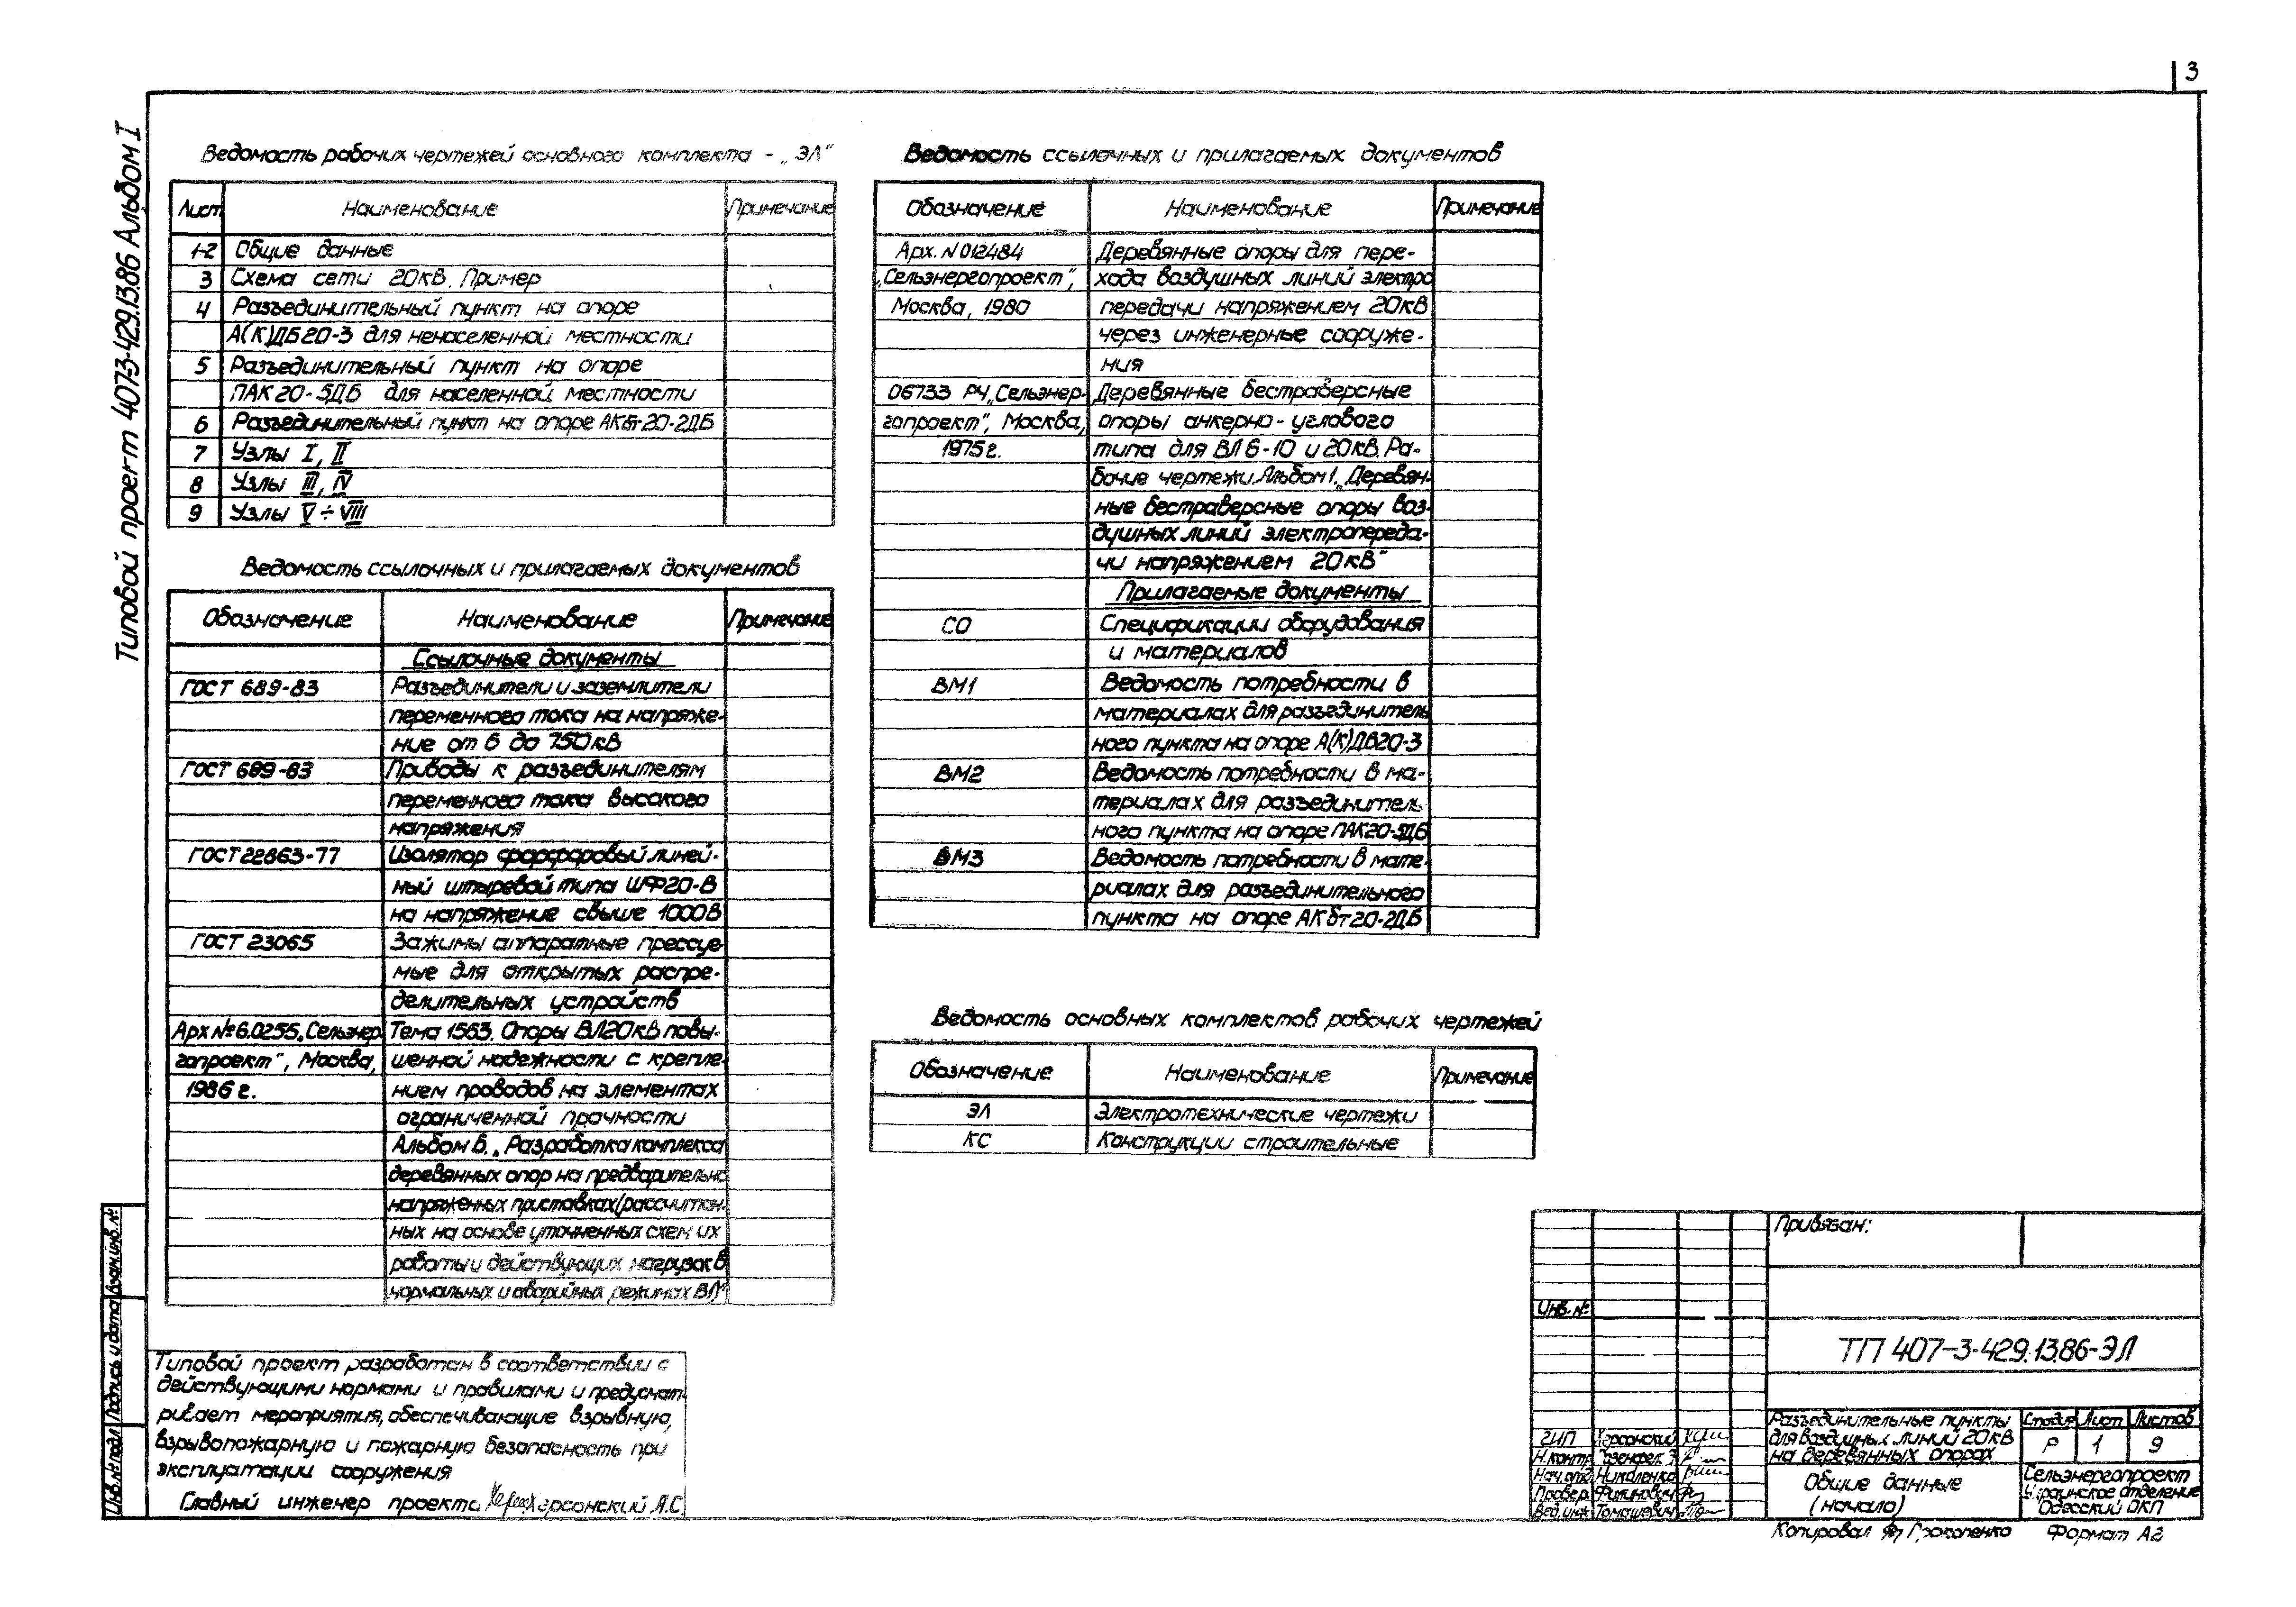 3
Типовой проект 4073-429.13.86 Альбом I
Ведомость рабочих чертежей основного комплекта - „ЭЛ"
Лист Наименование Примечание
1-2 Общие данные
3 Схема сети 20кВ. Пример
4 Разъединительный пункт на опоре
А(К)ДБ20-3 для ненаселенной местности
5 Разъединительный пункт на опоре
ПАК20-5ДБ для населенной местности
6 Разъединительный пункт на опоре АКбт-20-2ДБ
7 Узлы I, II
8 Узлы III, IV
9 Узлы V ÷ VIII
Ведомость ссылочных и прилагаемых документов
Обозначение Наименование Примечание
Ссылочные документы
ГОСТ 689-83 Разъединители и заземлители
переменного тока на напряже-
ние от 6 до 750кВ
ГОСТ 689-83 Приводы к разъединителям
переменного тока высокого
напряжения
ГОСТ 22863-77 Изолятор фарфоровый линей-
ный штыревой типа ШФ20-В
на напряжение свыше 1000В
ГОСТ 23065 Зажимы аппаратные прессуе-
мые для открытых распре-
делительных устройств
Арх №6.0255 „Сельэнер- Тема 1563. Опоры ВЛ20кВ повы-
гопроект", Москва, шенной надежности с крепле-
1986г. нием проводов на элементах
ограниченной прочности
Альбом 6. „Разработка комплекса
деревянных опор на предварительно
напряженных приставках (рассчитан-
ных на основе уточненных схем их
работы и действующих нагрузок в
нормальных и аварийных режимах ВЛ"
Типовой проект разработан в соответствии с
действующими нормами и правилами и предусмат-
ривает мероприятия, обеспечивающие взрывную,
взрывопожарную и пожарную безопасность при
эксплуатации сооружения
Главный инженер проекта Херсонский А.С.
Ведомость ссылочных и прилагаемых документов
Обозначение Наименование Примечание
Арх. N012484 Деревянные опоры для пере-
„Сельэнергопроект", хода воздушных линий электро
Москва, 1980 передачи напряжением 20кВ
через инженерные сооруже-
ния
06733 РЧ „Сельэнер- Деревянные бестраверсные
гопроект", Москва, опоры анкерно-углового
1975г. типа для ВЛ 6-10 и 20кВ. Ра-
бочие чертежи. Альбом 1. „Деревян-
ные бестраверсные опоры воз-
душных линий электропереда-
чи напряжением 20кВ"
Прилагаемые документы
СО Спецификации оборудования
и материалов
ВМ1 Ведомость потребности в
материалах для разъединитель
ного пункта на опоре А(К)ДБ20-3
ВМ2 Ведомость потребности в ма-
териалах для разъединитель
ного пункта на опоре ПАК20-5ДБ
ВМ3 Ведомость потребности в мате-
риалах для разъединительного
пункта на опоре АКбт20-2ДБ
Ведомость основных комплектов рабочих чертежей
Обозначение Наименование Примечание
ЭЛ Электротехнические чертежи
КС Конструкции строительные
Привязан:
Инв. №
ТП 407-3-429.13.86-ЭЛ
Разъединительные пункты
для воздушных линий 20кВ
на деревянных опорах
Стадия Лист Листов
Р 1 9
Общие данные
(начало)
Сельэнергопроект
Украинское отделение
Одесский ОКП
ГИП Херсонский
Н.контр.
Нач.отд. Николенко
Провер.
Вед.инж. Томашевич
Копировал Прокопенко Формат А2
Инв.№ подл Подпись и дата Взам.инв.№